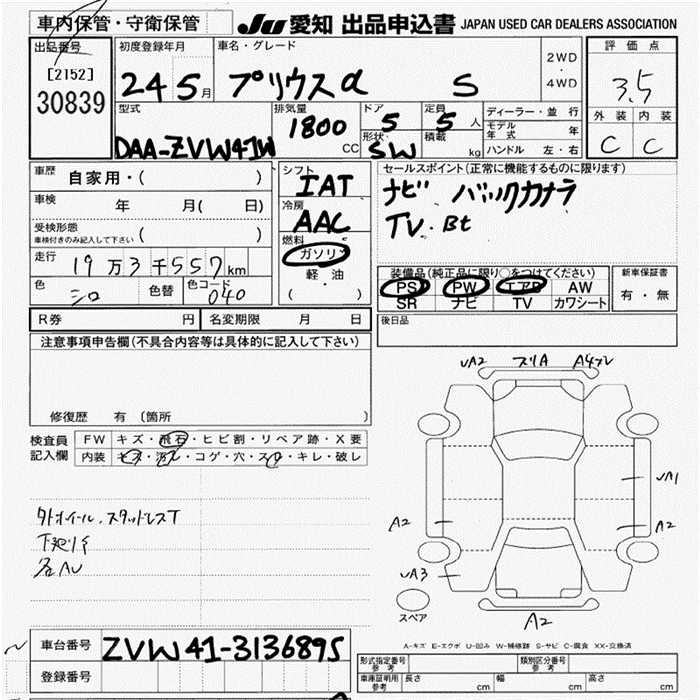 車内保管・守衛保管
JU 愛知 出品申込書 JAPAN USED CAR DEALERS ASSOCIATION
出品番号
[2152]
30839
初度登録年月
24 5月
車名・グレード
プリウスα S
2WD
・
4WD
評価点
3.5
外装 内装
C C
型式
DAA-ZVW41W
排気量
1800 CC
ドア
5
定員
5人
形状
SW
積載
kg
ディーラー・並行
モデル年式 年
ハンドル 左・右
車歴
自家用・( )
車検
年 月( 日)
受検形態
車検付きのみ記入して下さい ( )
走行
19万3千557km
色
シロ
色替
色コード
040
シフト
IAT
冷房
AAC
燃料
ガソリン
軽油
( ・ )
セールスポイント(正常に機能するものに限ります)
ナビ バックカメラ
TV. Bt
装備品(純正品に限り○をつけてください)
PS PW エアB AW
SR ナビ TV カワシート
新車保証書
有・無
R券 円
名変期限 月 日
後日品
注意事項申告欄(不具合内容等は具体的に記入して下さい)
修復歴 有〔箇所
検査員
記入欄
FW キズ・飛石・ヒビ割・リペア跡・X要
内装 キズ・汚レ・コゲ・穴・スレ・キレ・破レ
外ホイール.スタッドレスT
各AU
UA2 スリA
UA1
A2 A2
UA3
スペア
A2
A-キズ E-エクボ U-凹み W-補修跡 S-サビ C-腐食 XX-交換済
車台番号
ZVW41-3136895
登録番号
形式指定番号
参考
類別区分番号
参考
車庫証明用
参考
長さ cm
幅 cm
高さ cm